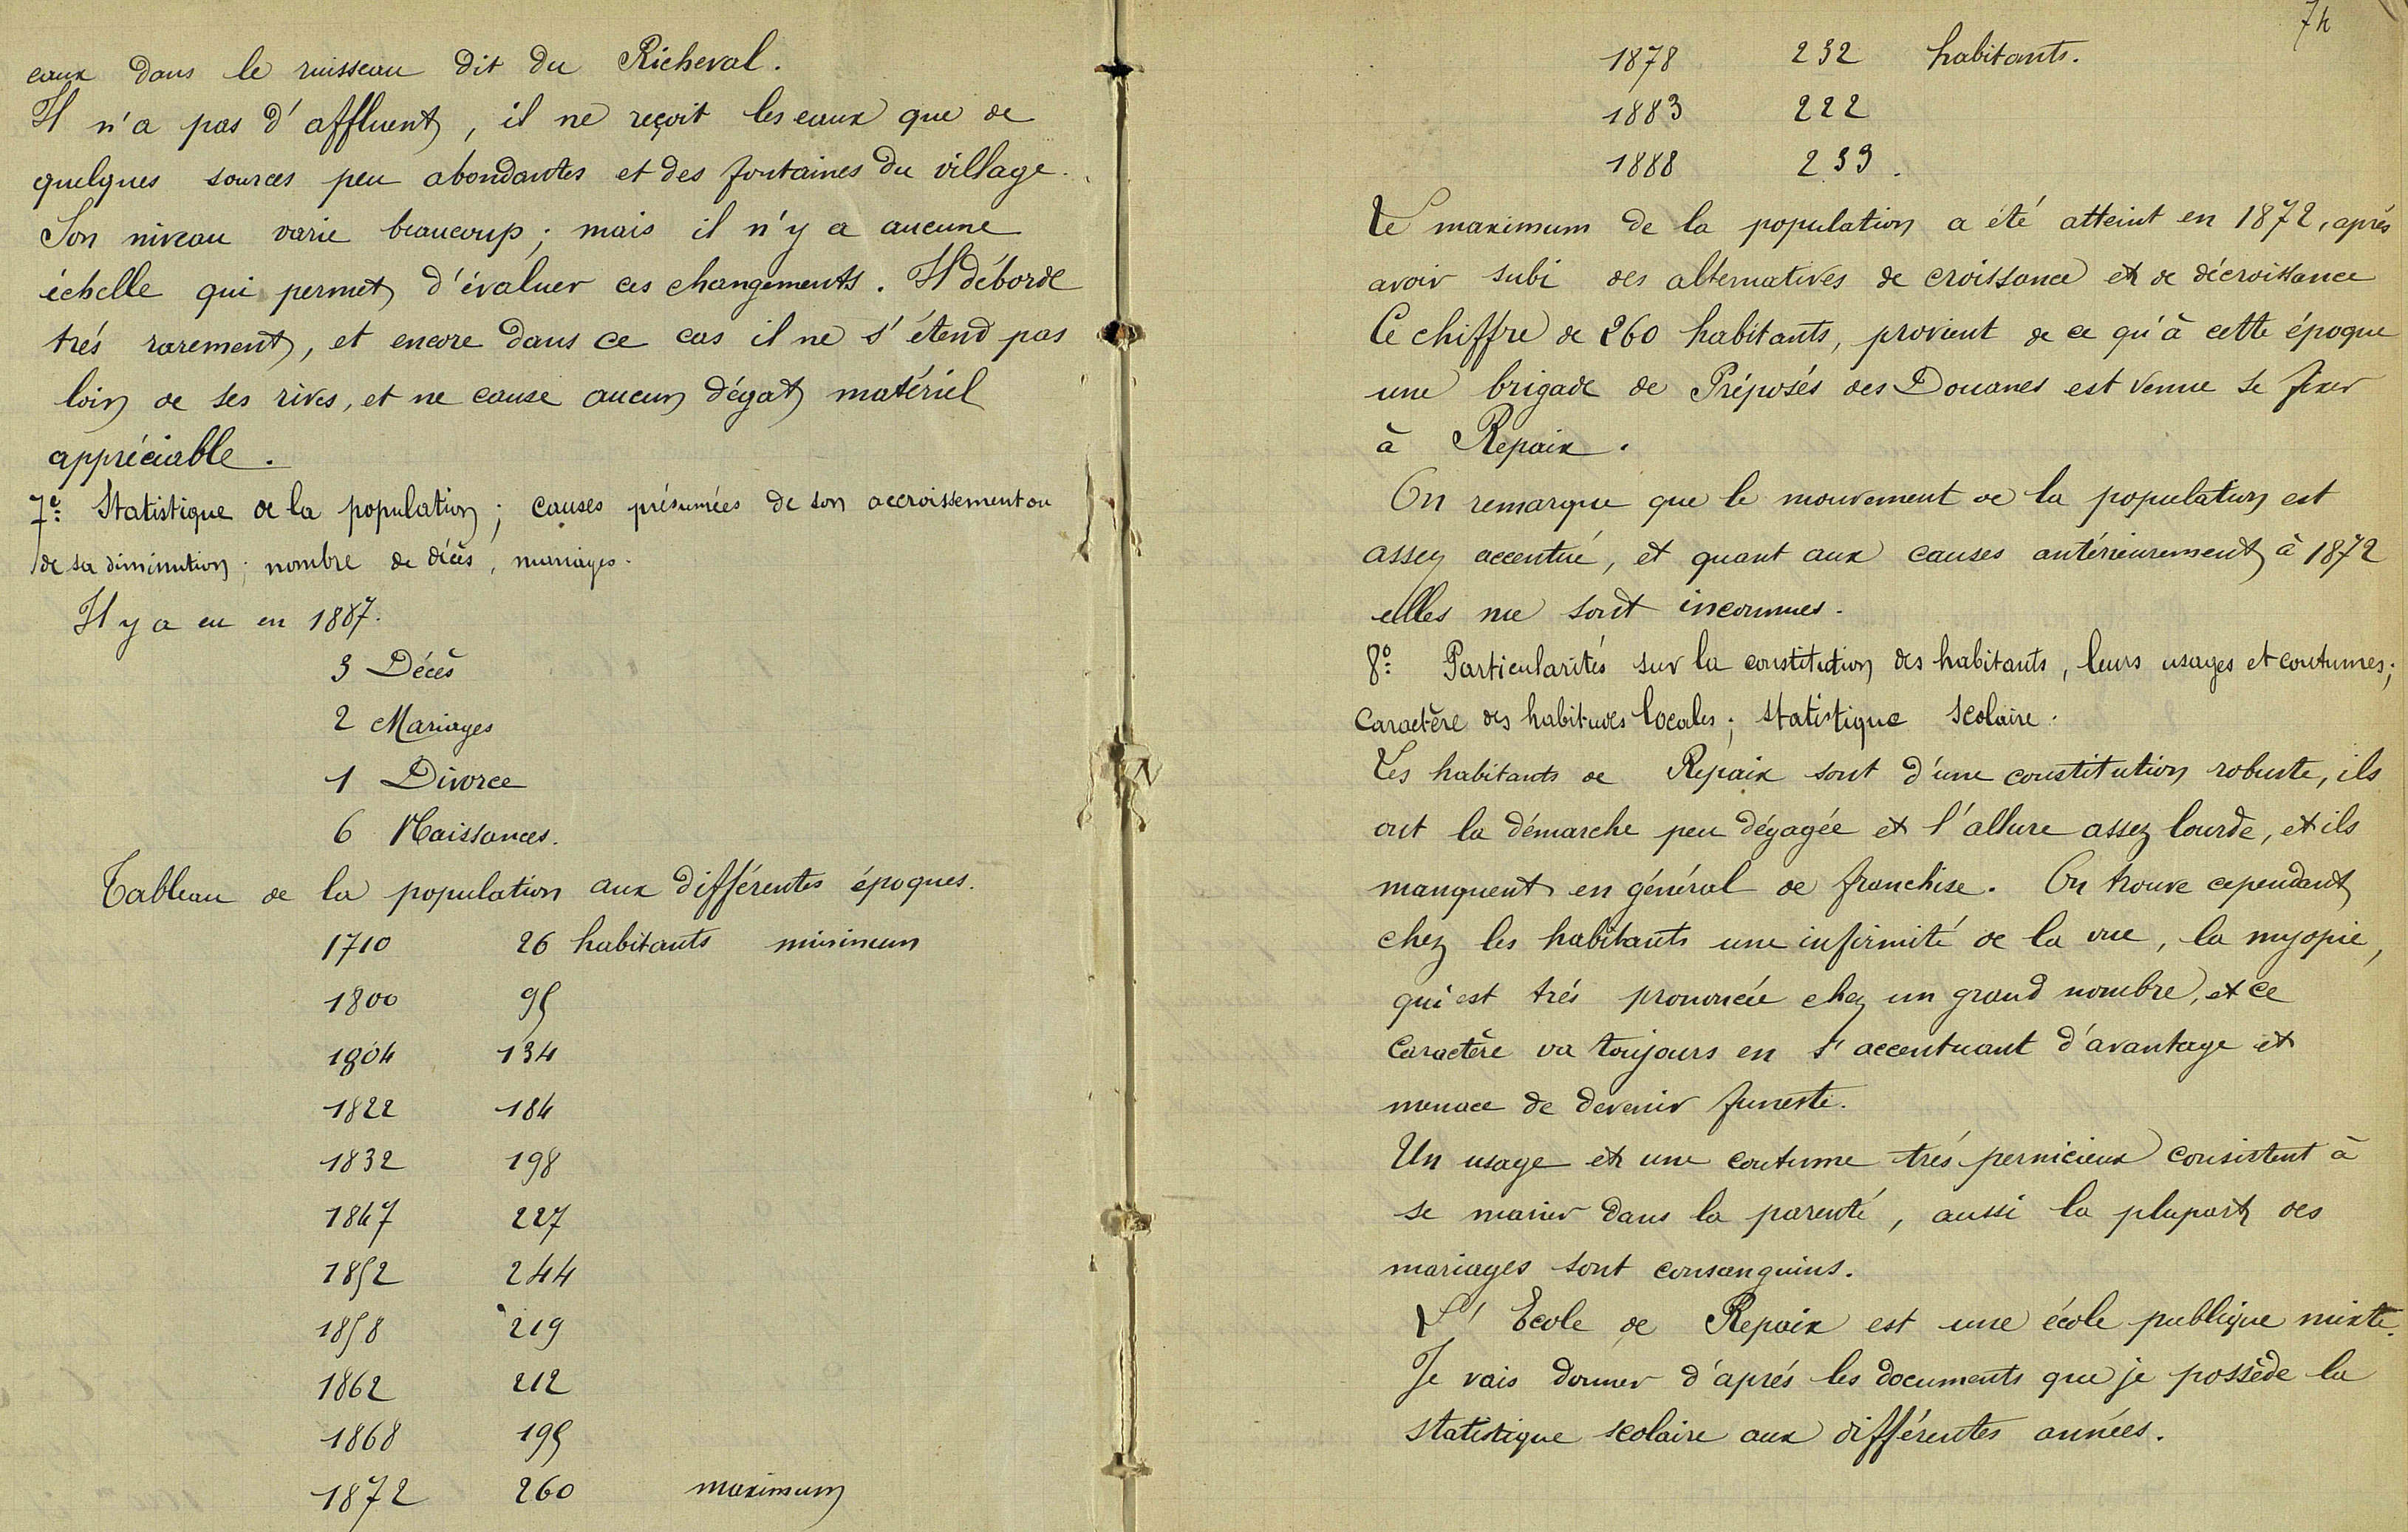 eaux dans le ruisseau dit du Richeval.
Il n'a pas d'affluent, il ne reçoit les eaux que de
quelques sources peu abondantes et des fontaines du village.
Son niveau varie beaucoup; mais il n'y a aucune
échelle qui permet d'évaluer ces changements. Il déborde
trés rarement, et encore dans ce cas il ne s'étend pas
loin de ses rives, et ne cause aucun dégat matériel
appréciable.
7e: Statistique de la population; causes présumées de son accroissement ou
de sa diminution; nombre de décès, mariages.
Il y a eu en 1887.
3 Décès
2 Mariages
1 Divorce
6 Naissances.
Tableau de la population aux différentes époques.
1710 26 habitants minimum
1800 95
1804 134
1822 184
1832 198
1847 227
1852 244
1858 219
1862 212
1868 195
1872 260 maximum
1878 232 habitants.
1883 222
1888 233.
Le maximum de la population a été atteint en 1872, aprés
avoir subi des alternatives de croissance et de décroissance
Ce chiffre de 260 habitants, provient de ce qu'à cette époque
une brigade de Préposés des Douanes est venue se fixer
à Repaix.
On remarque que le mouvement de la population est
assez accentué, et quant aux causes antérieurement à 1872
elles me sont inconnues.
8o: Particularités sur la constitution des habitants, leurs usages et coutumes;
Caractère des habitudes locales; statistique scolaire.
Les habitants de Repaix sont d'une constitution robuste, ils
ont la démarche peu dégagée et l'allure assez lourde, et ils
manquent en général de franchise. On trouve cependant
chez les habitants une infirmité de la vue, la myopie,
qui est trés prononcée chez un grand nombre, et ce
Caractère va toujours en s'accentuant d'avantage et
menace de devenir funeste.
Un usage et une coutume trés pernicieux consistent à
se marier dans la parenté, aussi la plupart des
mariages sont consanguins.
L'Ecole de Repaix est une école publique mixte.
Je vais donner d'aprés les documents que je possède la
statistique scolaire aux différentes années.